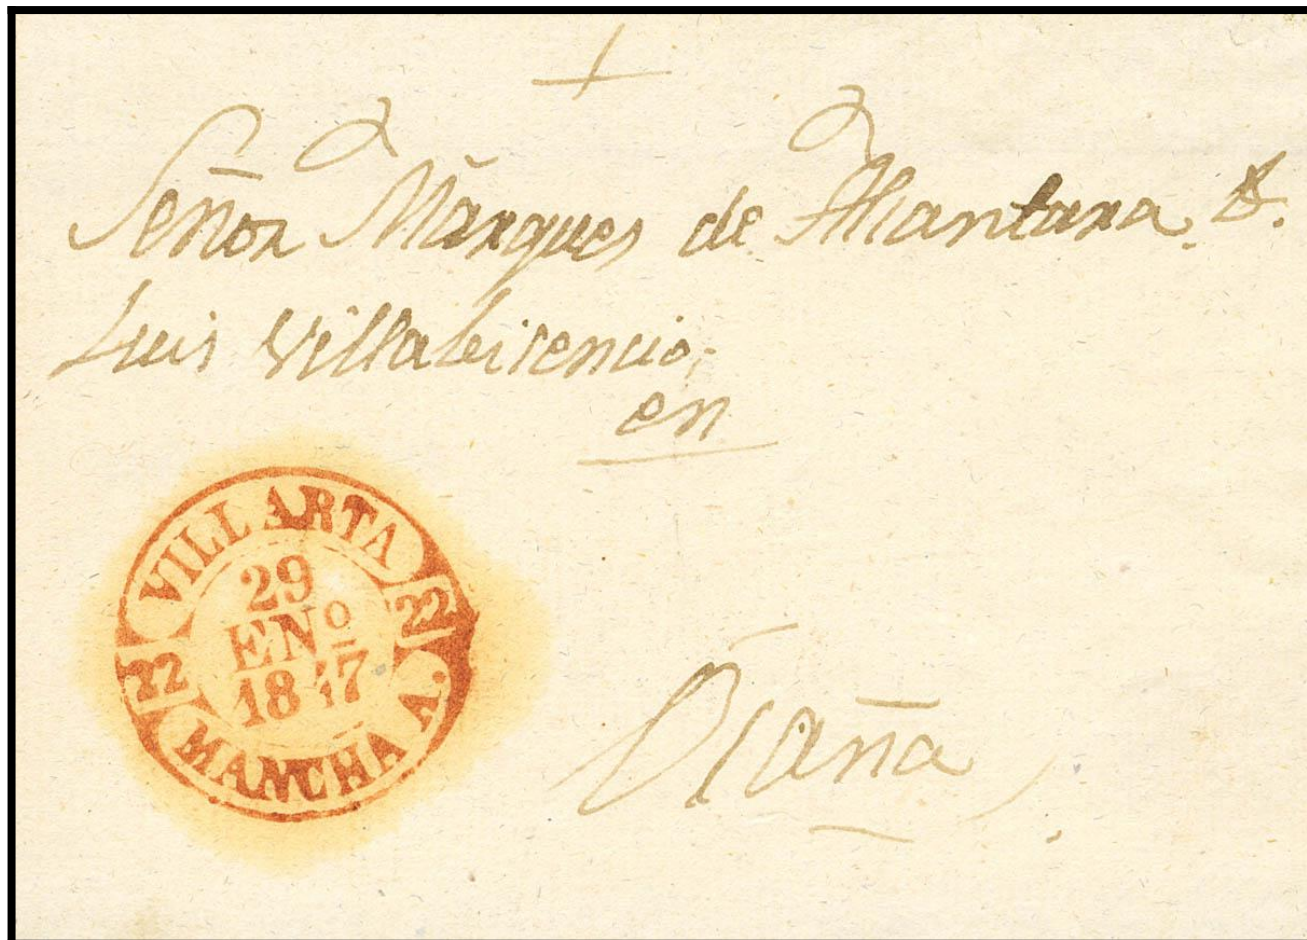 Señor Marques de Alcantara. D.
Luis Villabicencio,
en
VILLARTA
22
29
ENº
1847
22
MANCHA A.
Ocaña